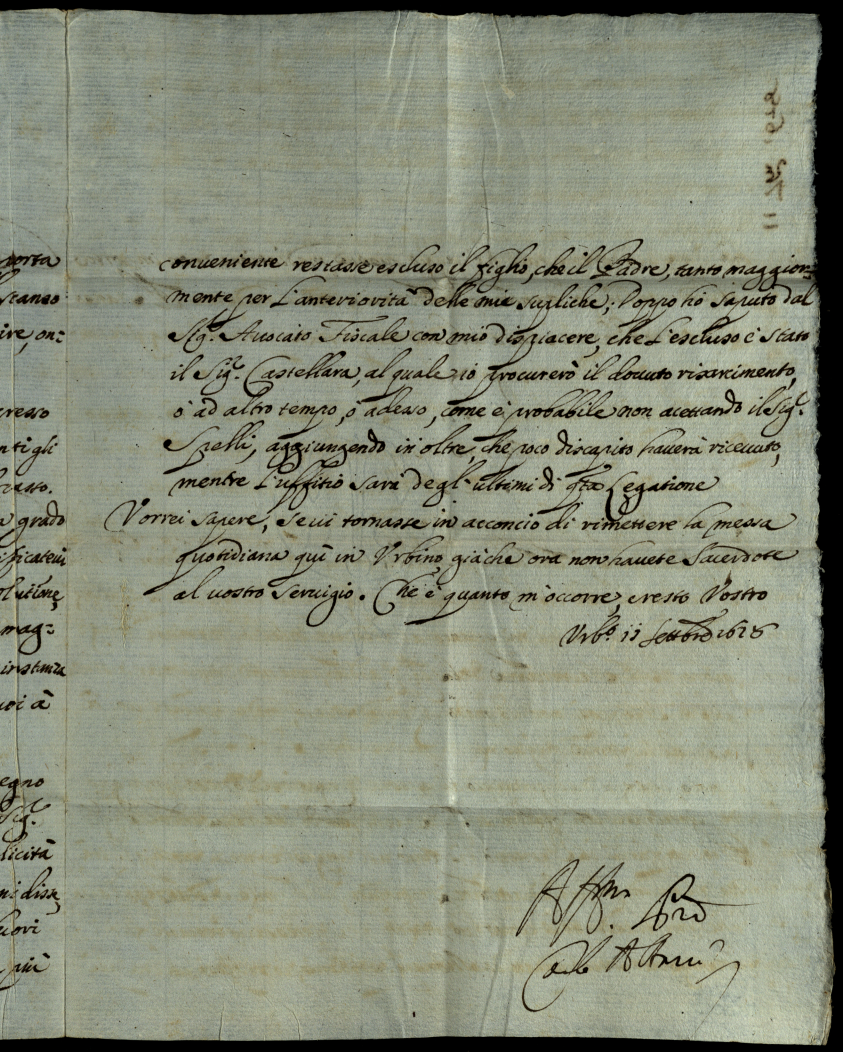 porta
stanso
ire, on=
presso
nti gli
grado
ificatevi
olutione,
mag=
instanza
voi à
egno
Sig.r
licità
ni disse,
uori
più
conueniente restasse escluso il figlio, che il Padre, tanto maggior=
mente per l'anteriorità delle mie supliche; Doppo hò saputo dal
Sig.r Auocato Fiscale con mio dispiacere, che l'escluso è stato
il Sig.r Castellara, al quale io procurerò il douuto risarcimento,
ò ad altro tempo, ò adesso, come è probabile non acettando il Sig.r
Spelli, aggiungendo in oltre, che poco discapito hauerà riceuuto,
mentre l'uffitio sarà degl'ultimi di q.ta Legatione
Vorrei sapere, se ui tornasse in acconcio di rimettere la messa
quotidiana quì in Vrbino, già che ora non hauete Sacerdote
al uostro seruigio. Che è quanto m'occorre, e resto Vostro
Vrb.o 11 Settbre 1678
Aff.mo
Carlo Albani